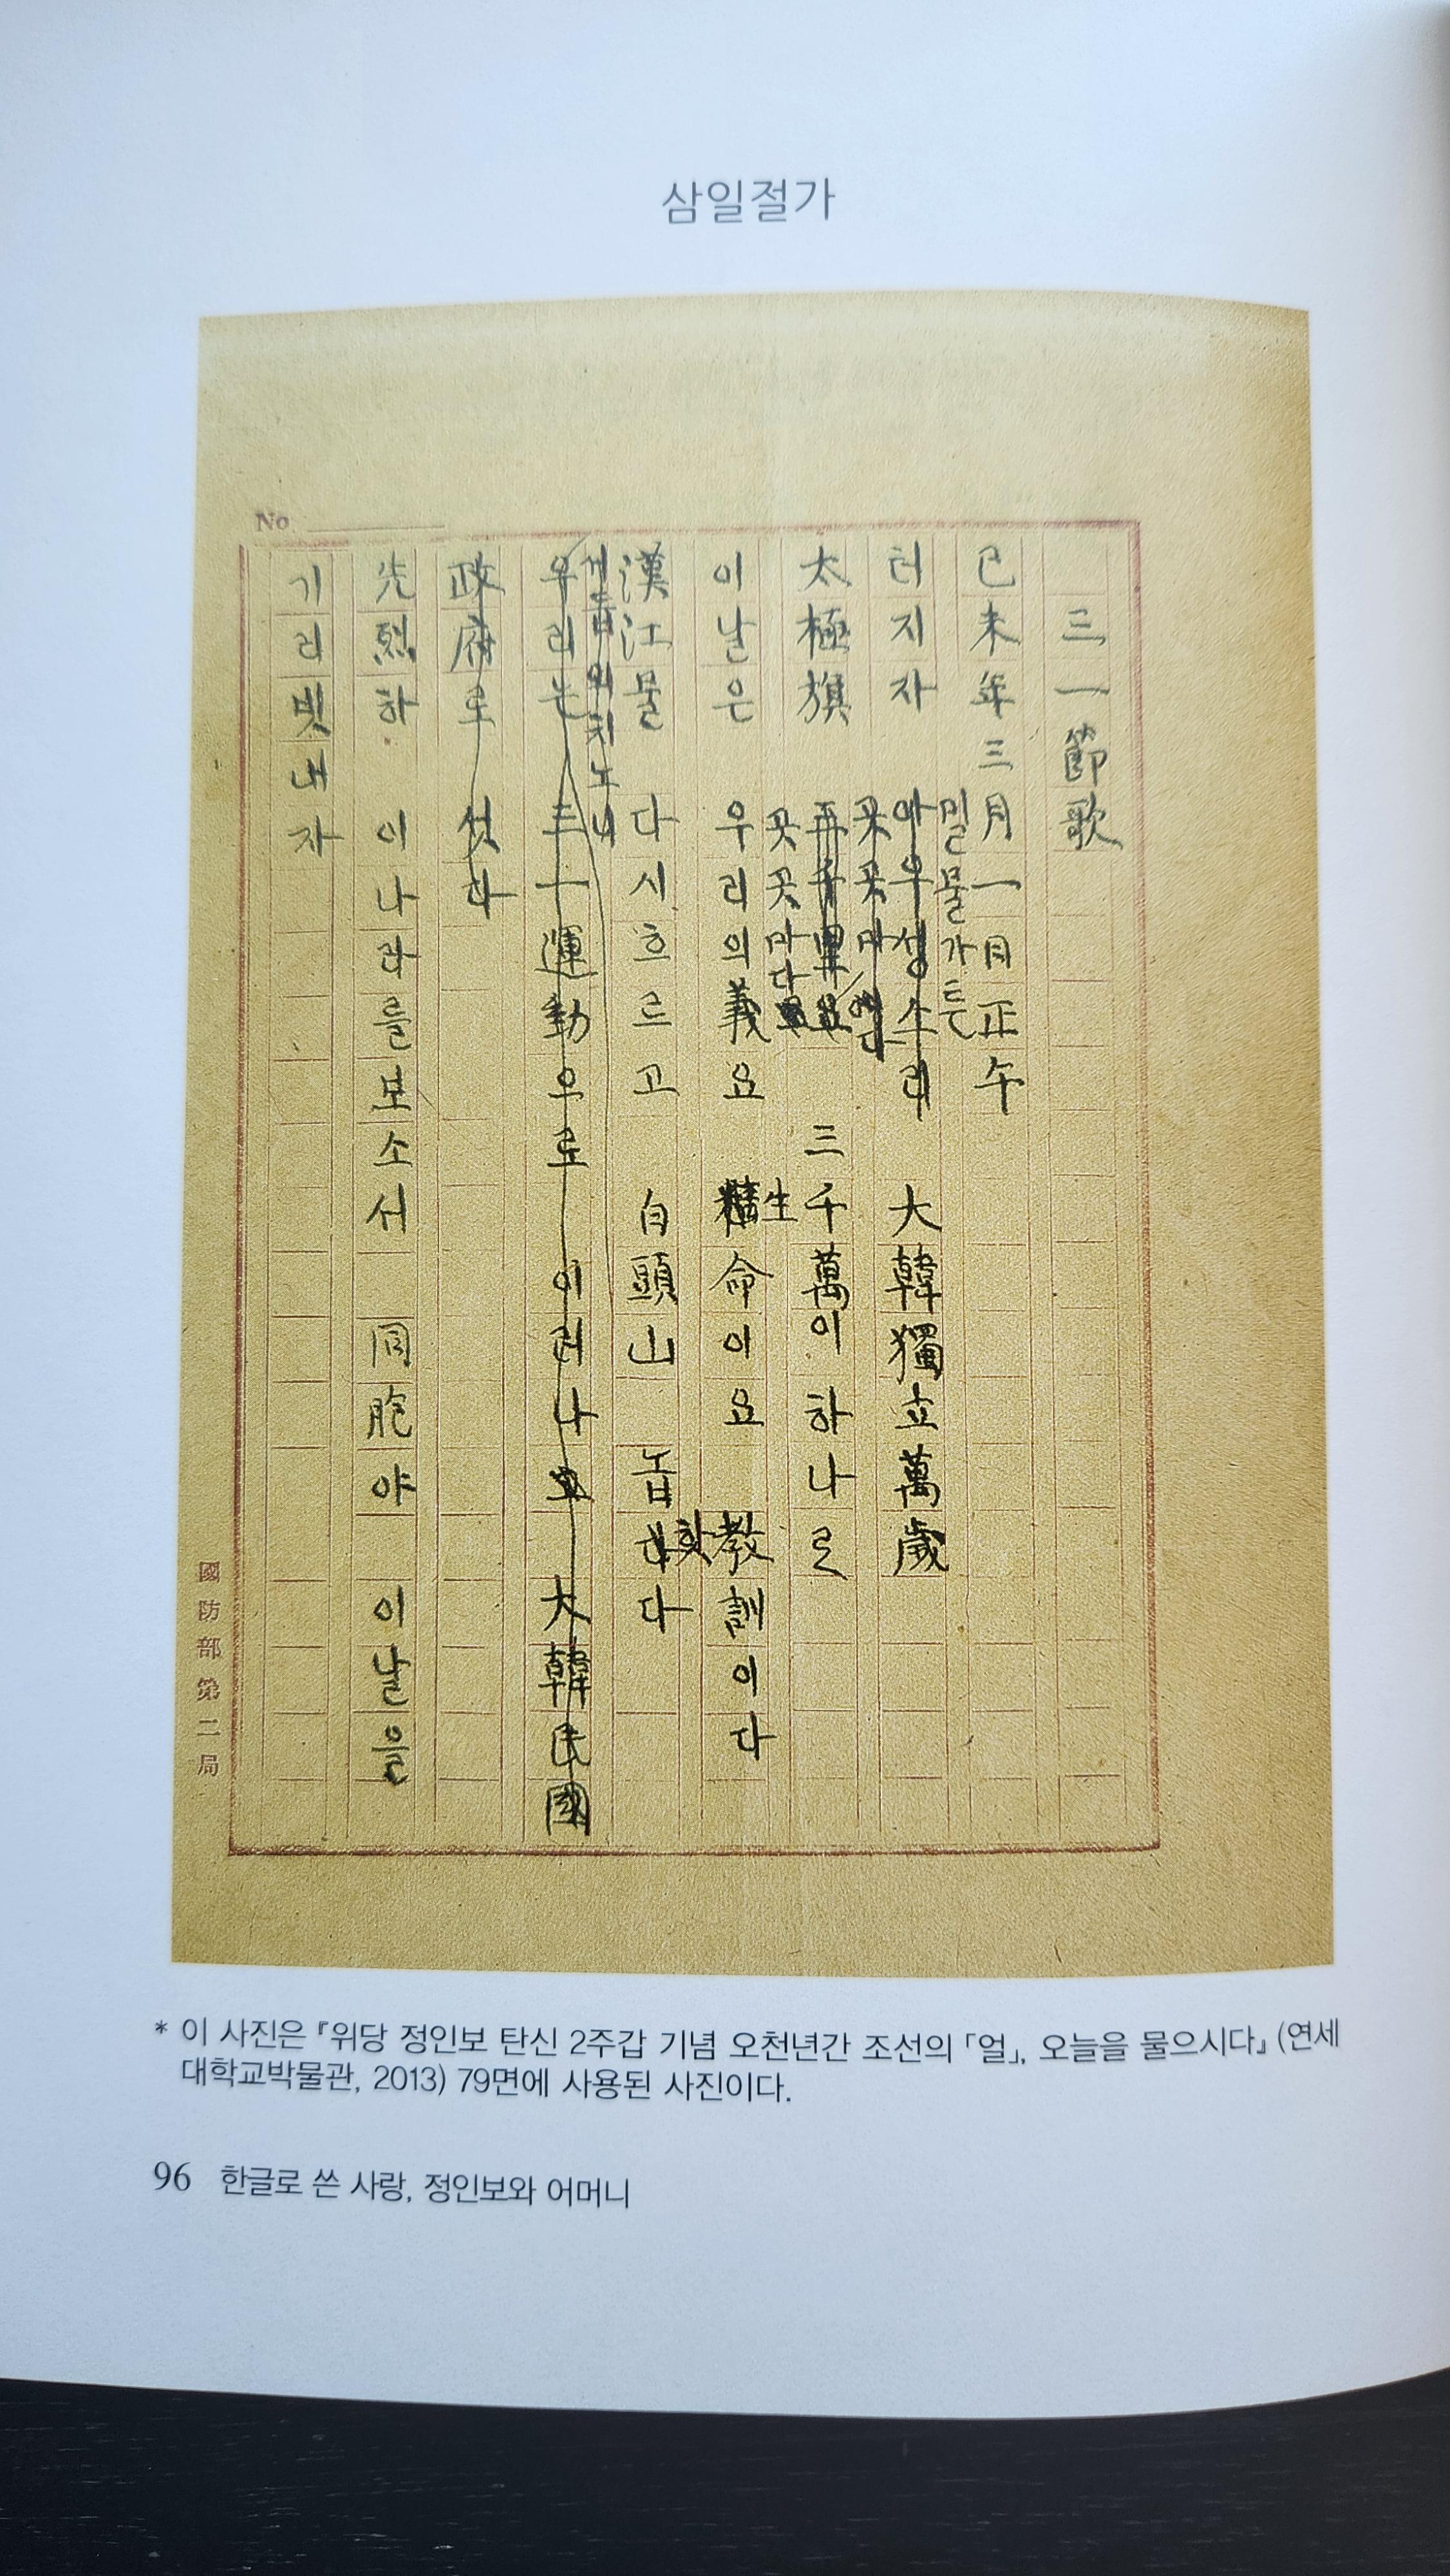 삼일절가
No.
三一節歌
己未年三月一日正午
밀물가튼
터지자 아우성소리 大韓獨立萬歲
곳곳마다
太極旗 三千萬이 하나로
곳곳마다
이날은 우리의義요 生命이요 敎訓이다
漢江물 다시흐르고 白頭山 놉핫다
우리는 三一運動으로 이러나 大韓民國
政府로 섯다
先烈하 이나라를보소서 同胞야 이날을
기리빗내자
國防部第二局
* 이 사진은 『위당 정인보 탄신 2주갑 기념 오천년간 조선의 「얼」, 오늘을 물으시다』 (연세
대학교박물관, 2013) 79면에 사용된 사진이다.
96 한글로 쓴 사랑, 정인보와 어머니